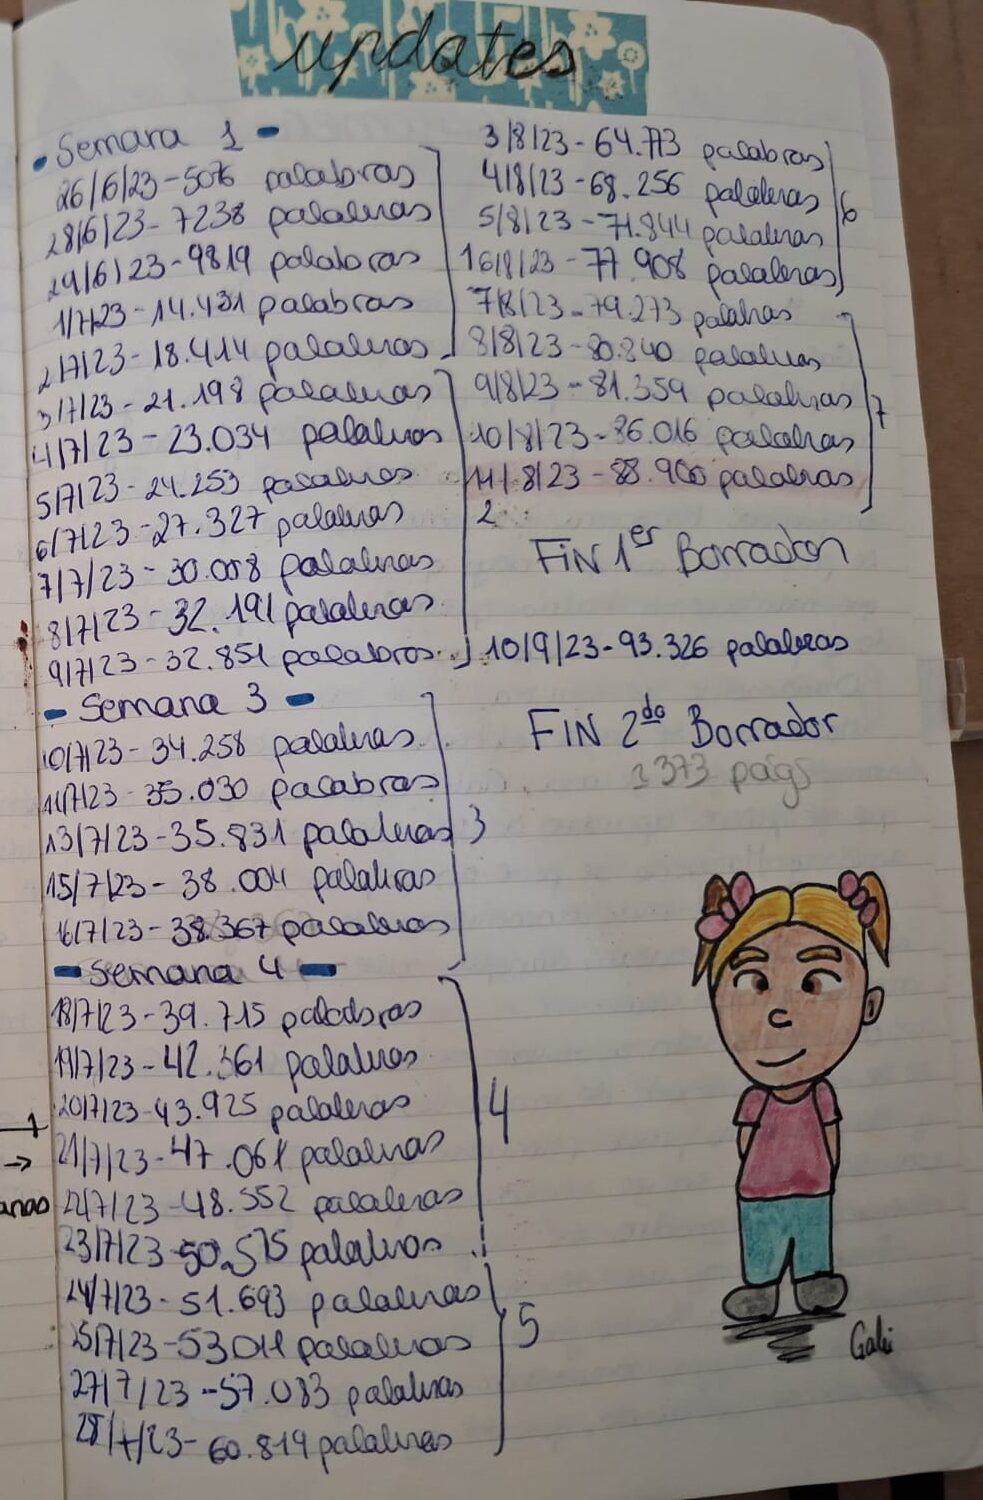 updates
Semana 1
26/6/23-5076 palabras
28/6/23-7238 palabras
29/6/23-9819 palabras
1/7/23-14.431 palabras
2/7/23-18.414 palabras
3/7/23-21.198 palabras
4/7/23-23.034 palabras
5/7/23-24.253 palabras
6/7/23-27.327 palabras
7/7/23-30.008 palabras
8/7/23-32.191 palabras
9/7/23-32.851 palabras
2
Semana 3
10/7/23-34.258 palabras
11/7/23-35.030 palabras
13/7/23-35.831 palabras
15/7/23-38.004 palabras
16/7/23-38.367 palabras
3
Semana 4
18/7/23-39.715 palabras
19/7/23-42.361 palabras
20/7/23-43.925 palabras
21/7/23-47.061 palabras
22/7/23-48.552 palabras
23/7/23-50.575 palabras
4
24/7/23-51.693 palabras
25/7/23-53011 palabras
27/7/23-57.083 palabras
28/7/23-60.819 palabras
5
3/8/23-64.773 palabras
4/8/23-68.256 palabras
5/8/23-71.844 palabras
16/8/23-77.908 palabras
6
7/8/23-79.273 palabras
8/8/23-80.840 palabras
9/8/23-81.359 palabras
10/8/23-86.016 palabras
11/8/23-88.900 palabras
7
FIN 1er Borrador
10/9/23-93.326 palabras
FIN 2do Borrador
373 págs